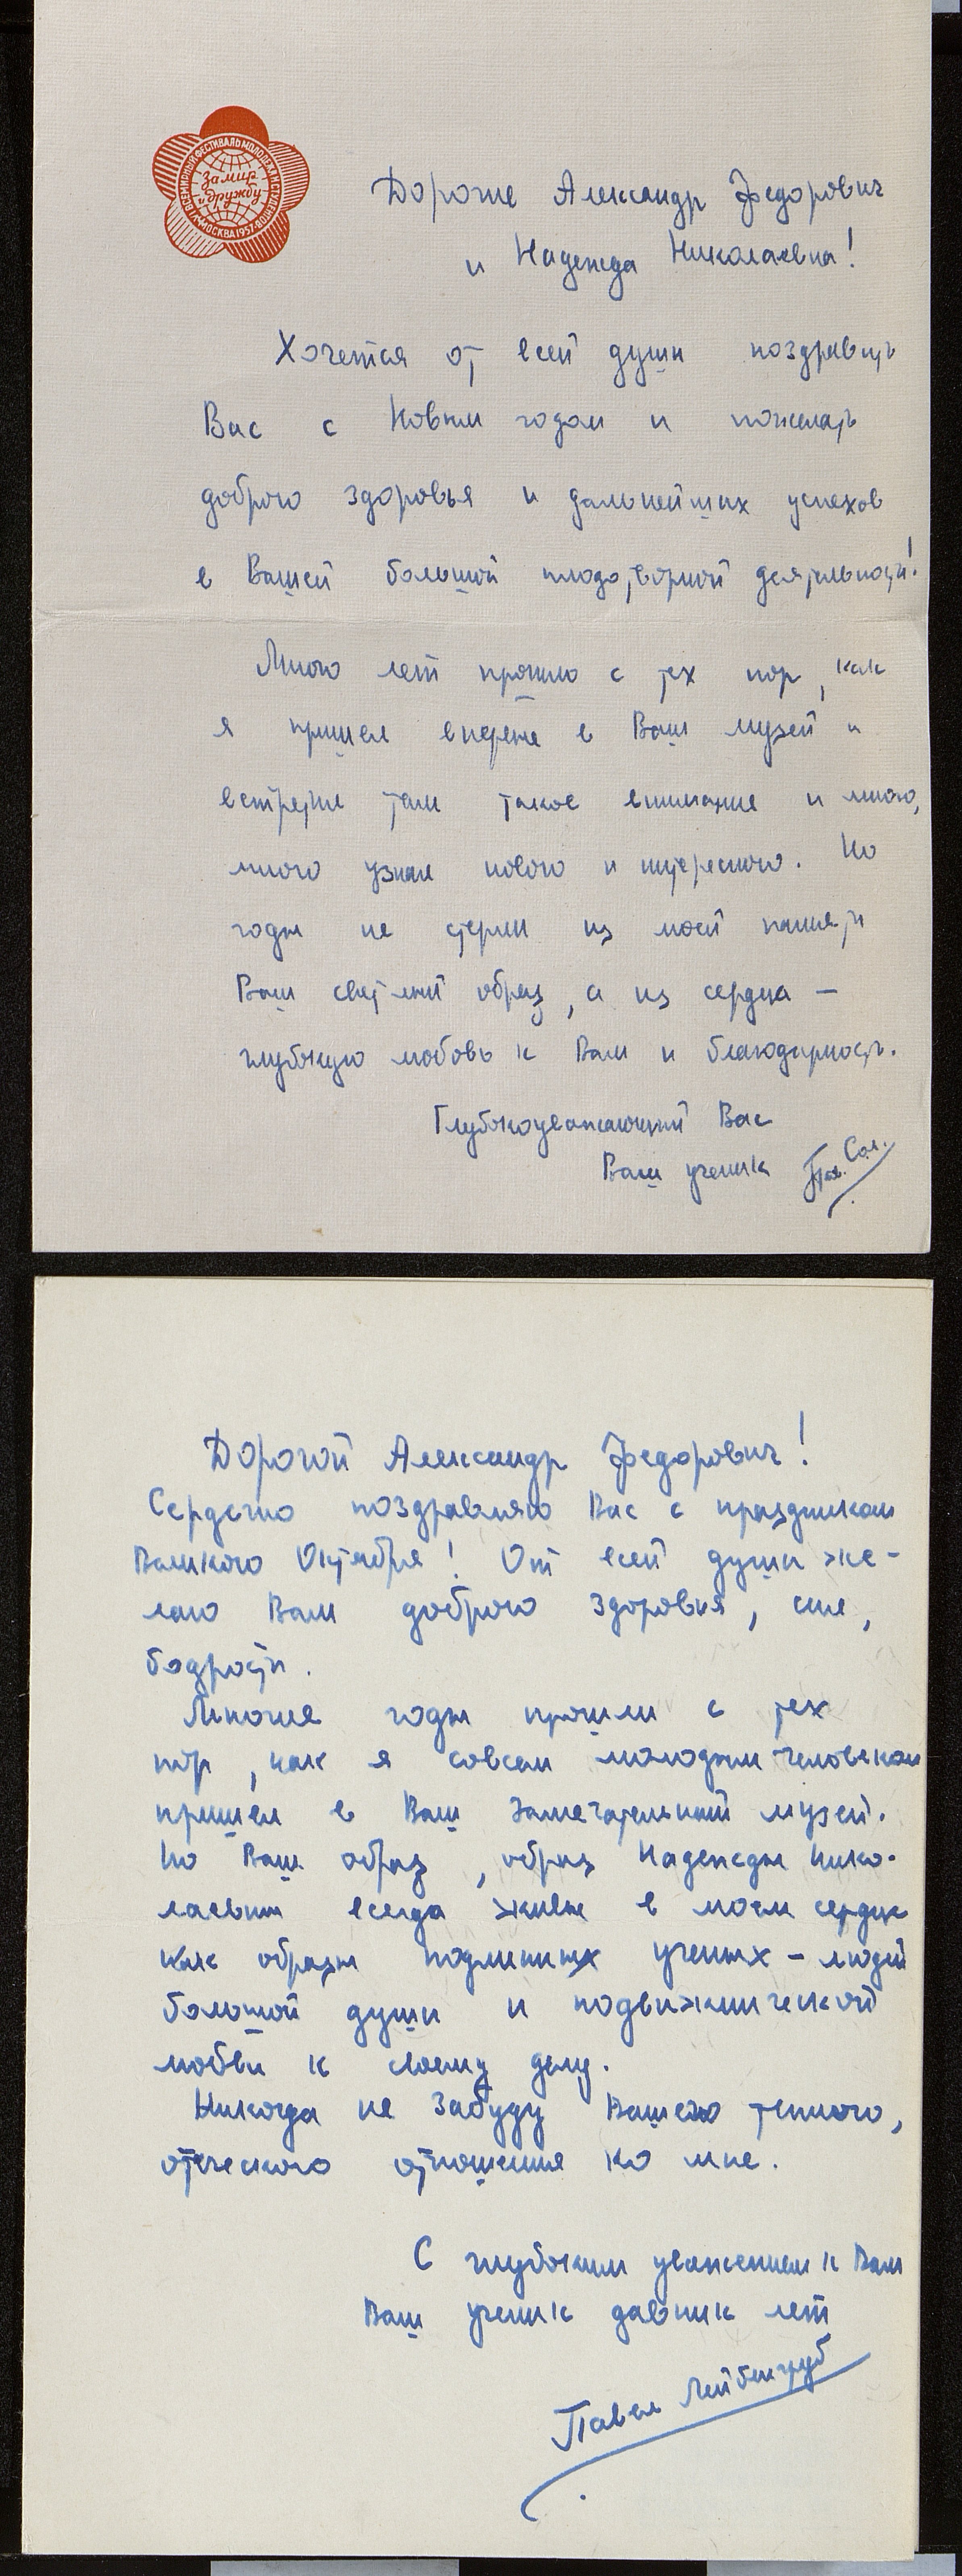 VI ВСЕМИРНЫЙ ФЕСТИВАЛЬ МОЛОДЕЖИ И СТУДЕНТОВ
МОСКВА 1957
За мир
и дружбу
Дорогие Александр Федорович
и Надежда Николаевна!
Хочется от всей души поздравить
Вас с Новым годом и пожелать
доброго здоровья и дальнейших успехов
в Вашей большой плодотворной деятельности!
Много лет прошло с тех пор, как
я пришел впервые в Ваш музей и
встретил там такое внимание и много,
много узнал нового и интересного. Но
годы не стерли из моей памяти
Ваш светлый образ, а из сердца —
глубокую любовь к Вам и благодарность.
Глубокоуважающий Вас
Ваш ученик
Дорогой Александр Федорович!
Сердечно поздравляю Вас с праздником
Великого Октября! От всей души же-
лаю Вам доброго здоровья, сил,
бодрости.
Многие годы прошли с тех
пор, как я совсем молодым человеком
пришел в Ваш замечательный музей.
Но Ваш образ, образ Надежды Нико-
лаевны всегда живы в моем сердце
как образы подлинных ученых – людей
большой души и подвижнической
любви к своему делу.
Никогда не забуду Вашего теплого,
отеческого отношения ко мне.
С глубоким уважением к Вам
Ваш ученик давних лет
Павел Лейбенгруб